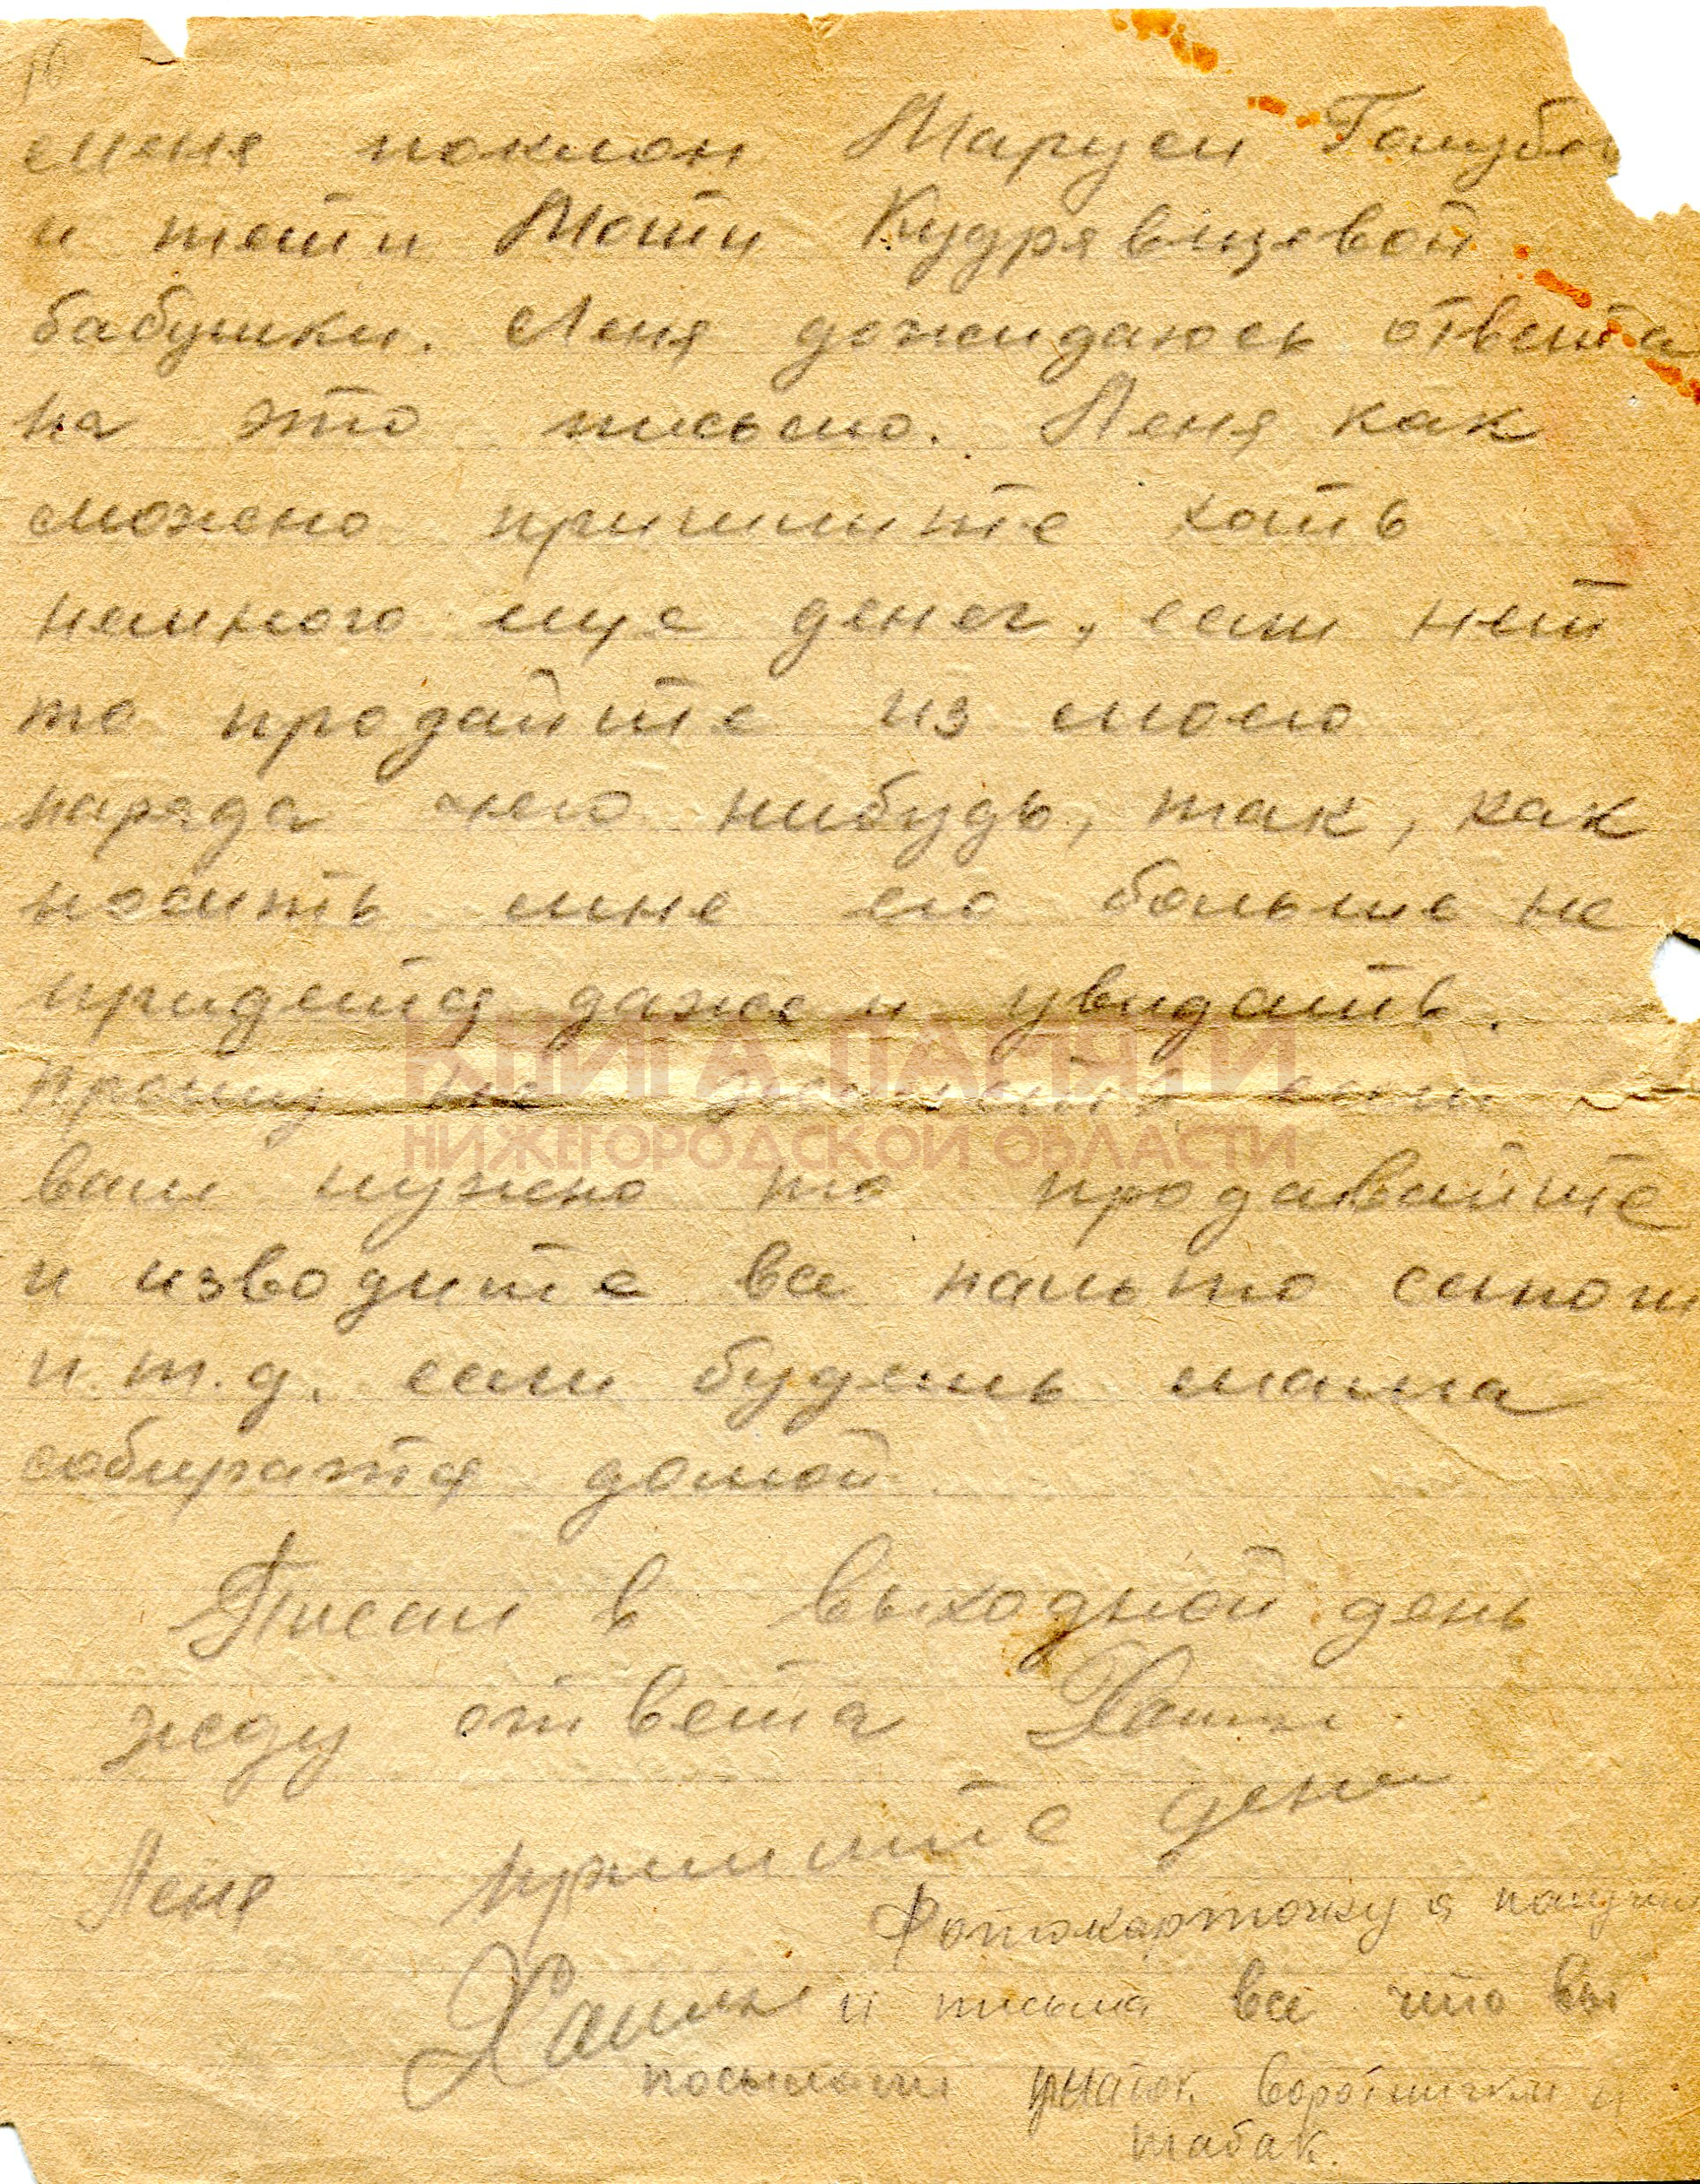 меня поклон Маруси Голубе
и тети Моти Кудрявцевой
бабушки. Леня дожидаюсь ответа
на это письмо. Леня как
можно пришлите хоть
немного еще денег, если нет
то продайте из моего
наряда чего нибудь, так, как
носить мне его больше не
придется даже и увидать.
КНИГА ПАМЯТИ
Прошу не если
НИЖЕГОРОДСКОЙ ОБЛАСТИ
вам нужно то продавайте
и изводите все пальто сапоги
и т.д. если будешь мама
собиратся домой
Писал в выходной день
жду ответа
Леня пришлите денег
Фотокарточку я получил
и письма все что вы
посылали воротнички и
табак.